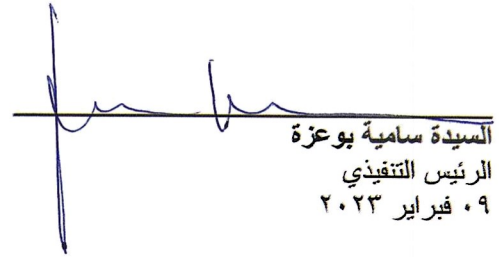 السيدة سامية بوعزة
الرئيس التنفيذي
٠٩ فبراير ٢٠٢٣